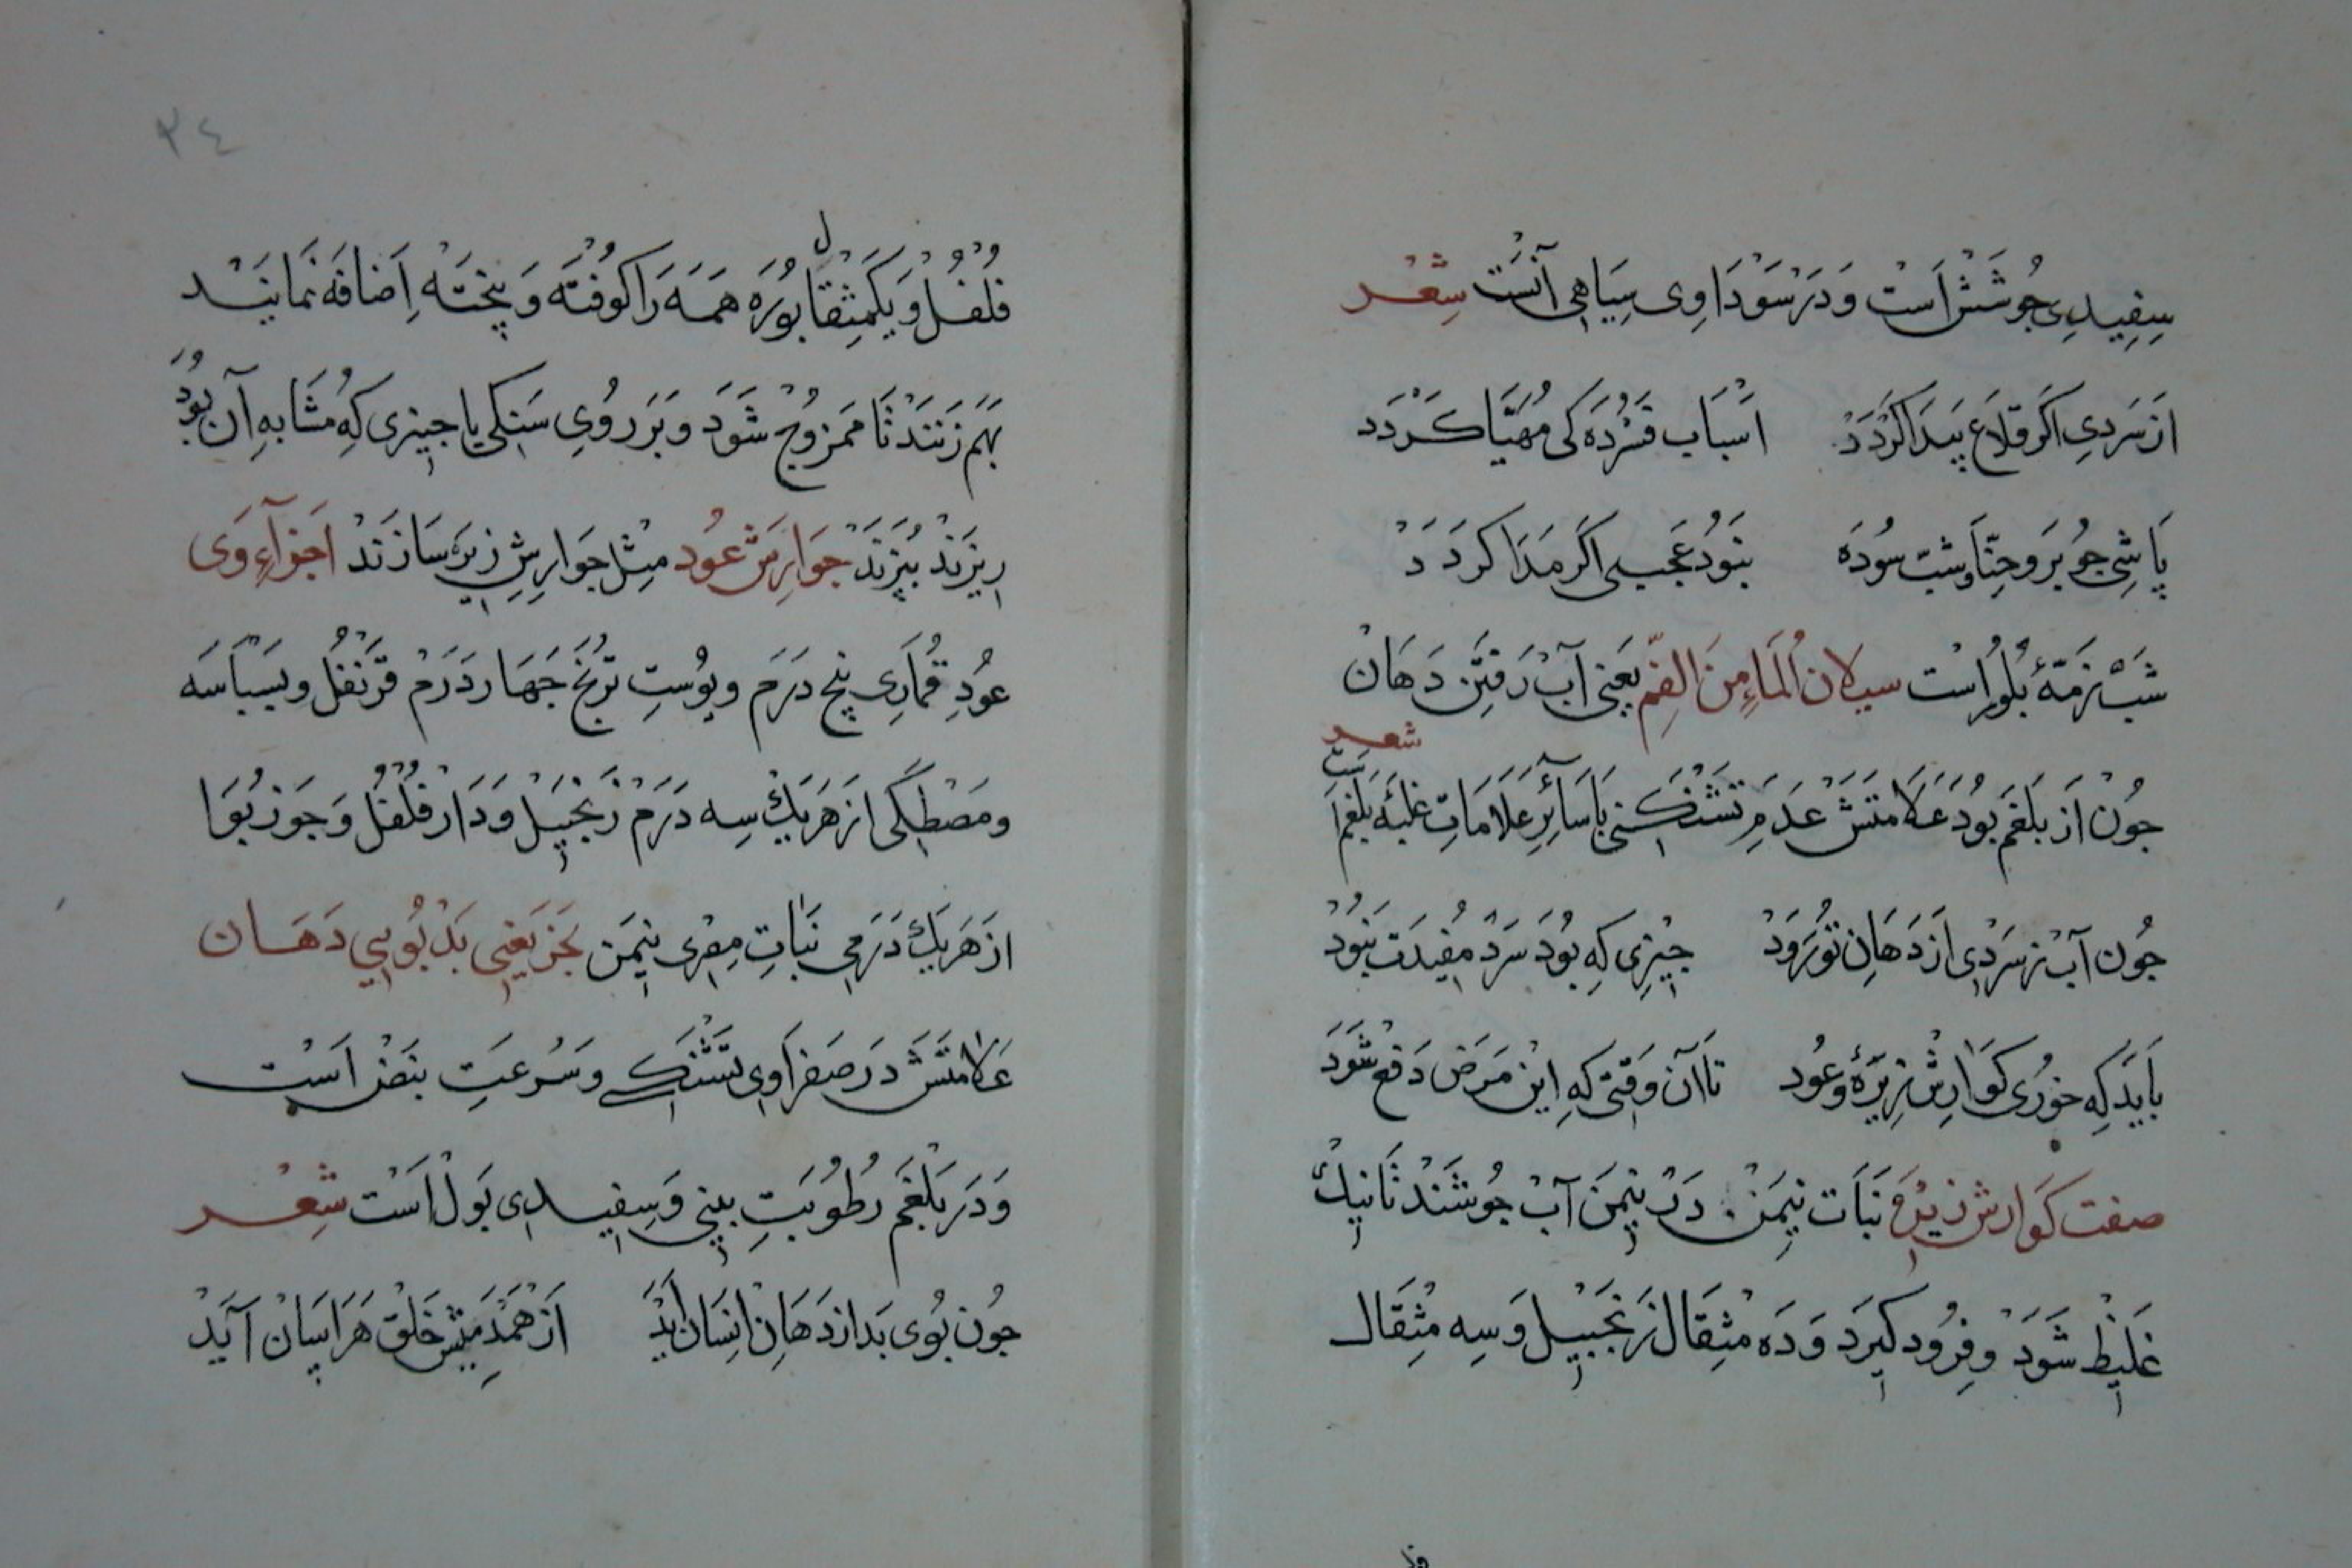 سِفِیدِی جُوشَشْ اَسْت وَدَرْسَوْدَاوِی سِیَاهِی آنَسْت شِعْر
اَزسَردِی اَکَر قلَاع پَیدَا کَرْدَدْ اَسْبَاب فَسُرْدَه کَی مُهَیَّا کَرْدَد
پَاشِی جُو بَرَو حِنَّا وَشبّ سُودَه نَبْوَد عَجَبِی اَکَر مَدَاکَرْدَدْ
شَبّ نَزمَهٔ بُلُوراَسْت سیلانُ الْمَاءِ مِنَ الفَمِّ یَعْنِی آبْ رَفتَن دَهَانْ
شعر
جُونْ اَز بَلغَم بُودَ عَلَامَتَشْ عَدَمِ تَشْنَکِی بَاسَائِرِ عَلَامَاتِ غَلبَهٔ بَلغَم اَست
جُون آبْ زسَرْدِی اَز دَهَانِ تُو رَوَدْ جِیزِی کِه بُوَدْ سَرْد مُفِیدَت نَبُوَد
بَایَد کِه خُورِی کَوَارِشْ زِیرَهٔ وعُود تَاآن وَقتِی کِه این مَرَض دَفع شَوَد
صفت کَوَارش زیره نَبَات نِیمَنْ دَرْ نِیمَن آبْ جُوشَنْد تَانِیکْ
غَلِیظْ شَوَدْ وفِرُود کِیرَد وَدَه مِثقَال زَنجَبِیل وَسِه مِثقَال
فلـ
٣٤
فُلفُل وَیَکمِثقَال بُورَه هَمَه رَا کوُفتَه وَبِیختَه اِضَافَه نَمَایَنْد
بَهَم زَنَنْد تَا مَمزُوجْ شَوَدْ وَبَررُویِ سَنکِی یا جیزی کِه مُشَابهِ آن بُوَد
رِیزَنْد بُبَرَنْد جَوَارِشْ عُود مِثل جَوَارِشِ زِیرَه سَازَنْد اَجزَآءِ وَی
عُودِ قُمَارِی پنج دَرَم وپُوستِ تُرُنج جَهَاردَرَمْ قَرَنفُل وبَسْبَاسَه
ومَصْطَکِی از هَریَكْ سِه دَرَمْ زَنجَبِیلْ وَدَارفُلفُل وَجَوزبُوَا
از هَریَكْ دَرَمِی نَبَاتِ مِصْرِی نِیمَن بَخَر یَعنِی بَدْبُویِیِ دَهَان
عَلَامَتَشْ دَر صَفرَاوِی تَشْنَکِی وسُرعَتِ نَبَض اَسْت
وَدَر بَلْغَم رُطُوبَتِ بِینِی وَسِفِیدِی بَول اَسْت شِعْر
جُون بُوی بَد از دَهَانِ اِنسَان آیَدْ اَز هَمْدَمِیَش خَلق هَرَاسَان آیَدْ